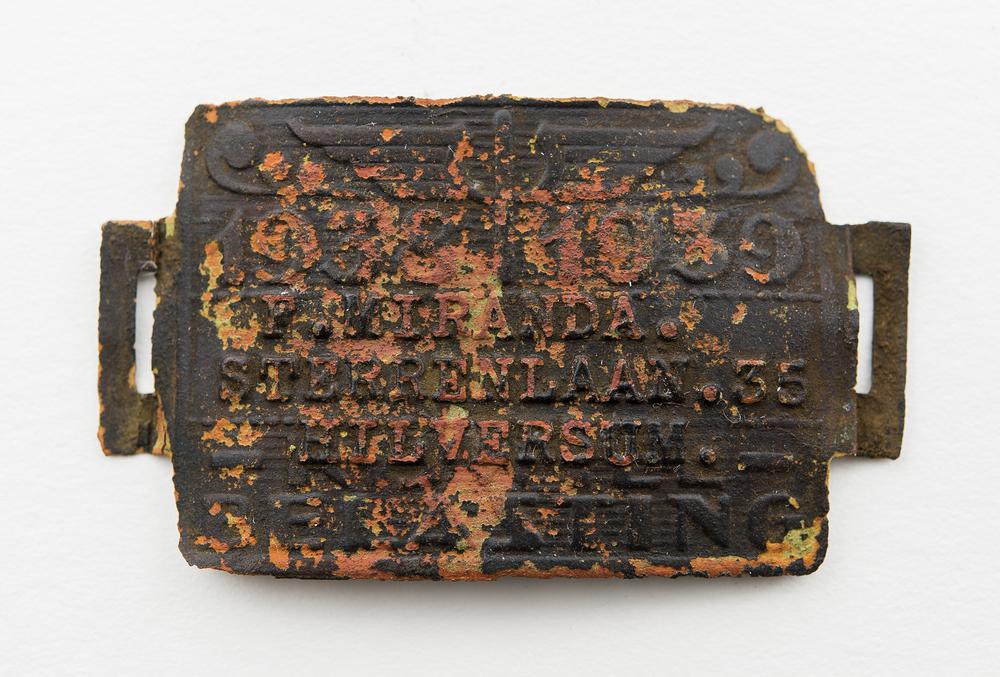 1938 1939
F. MIRANDA.
STERRENLAAN. 35
HILVERSUM.
BELASTING